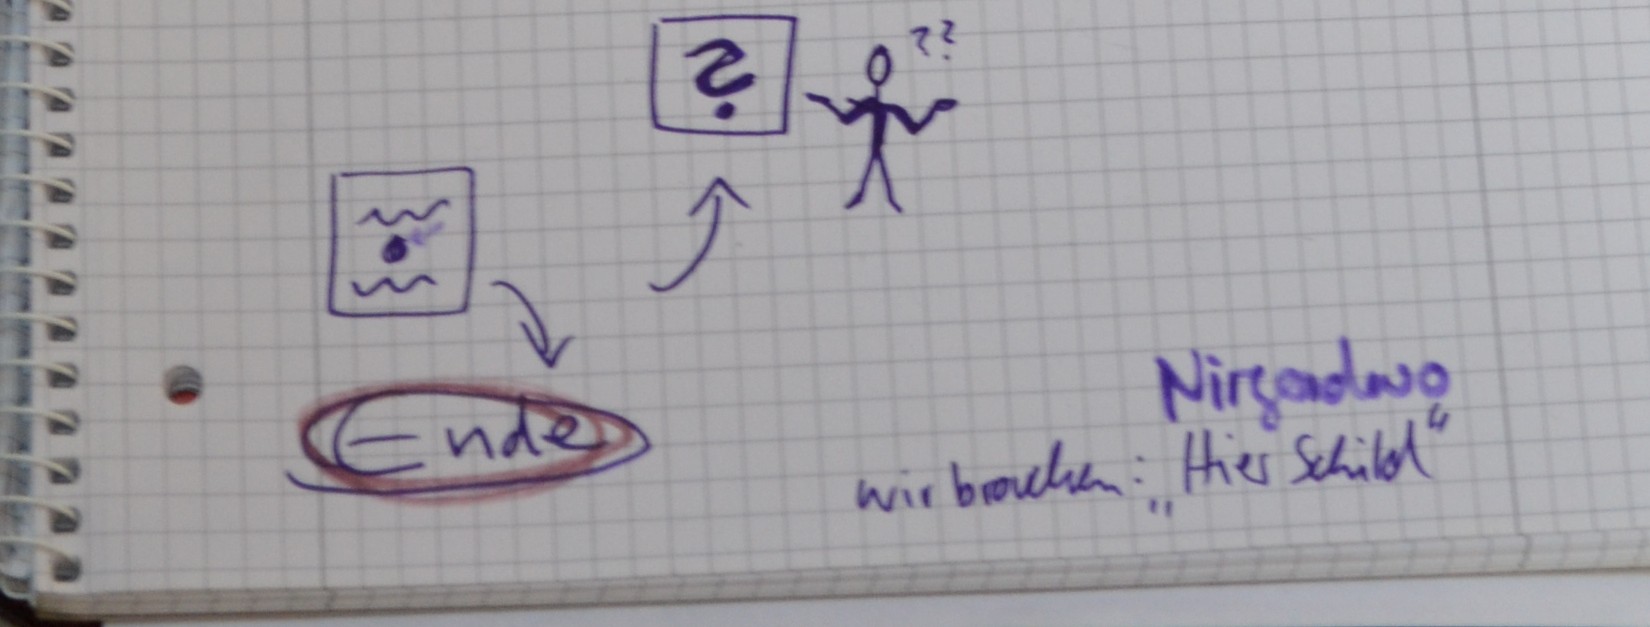 ?
??
Ende
Nirgendwo
wir brauchen: „Hier Schild“